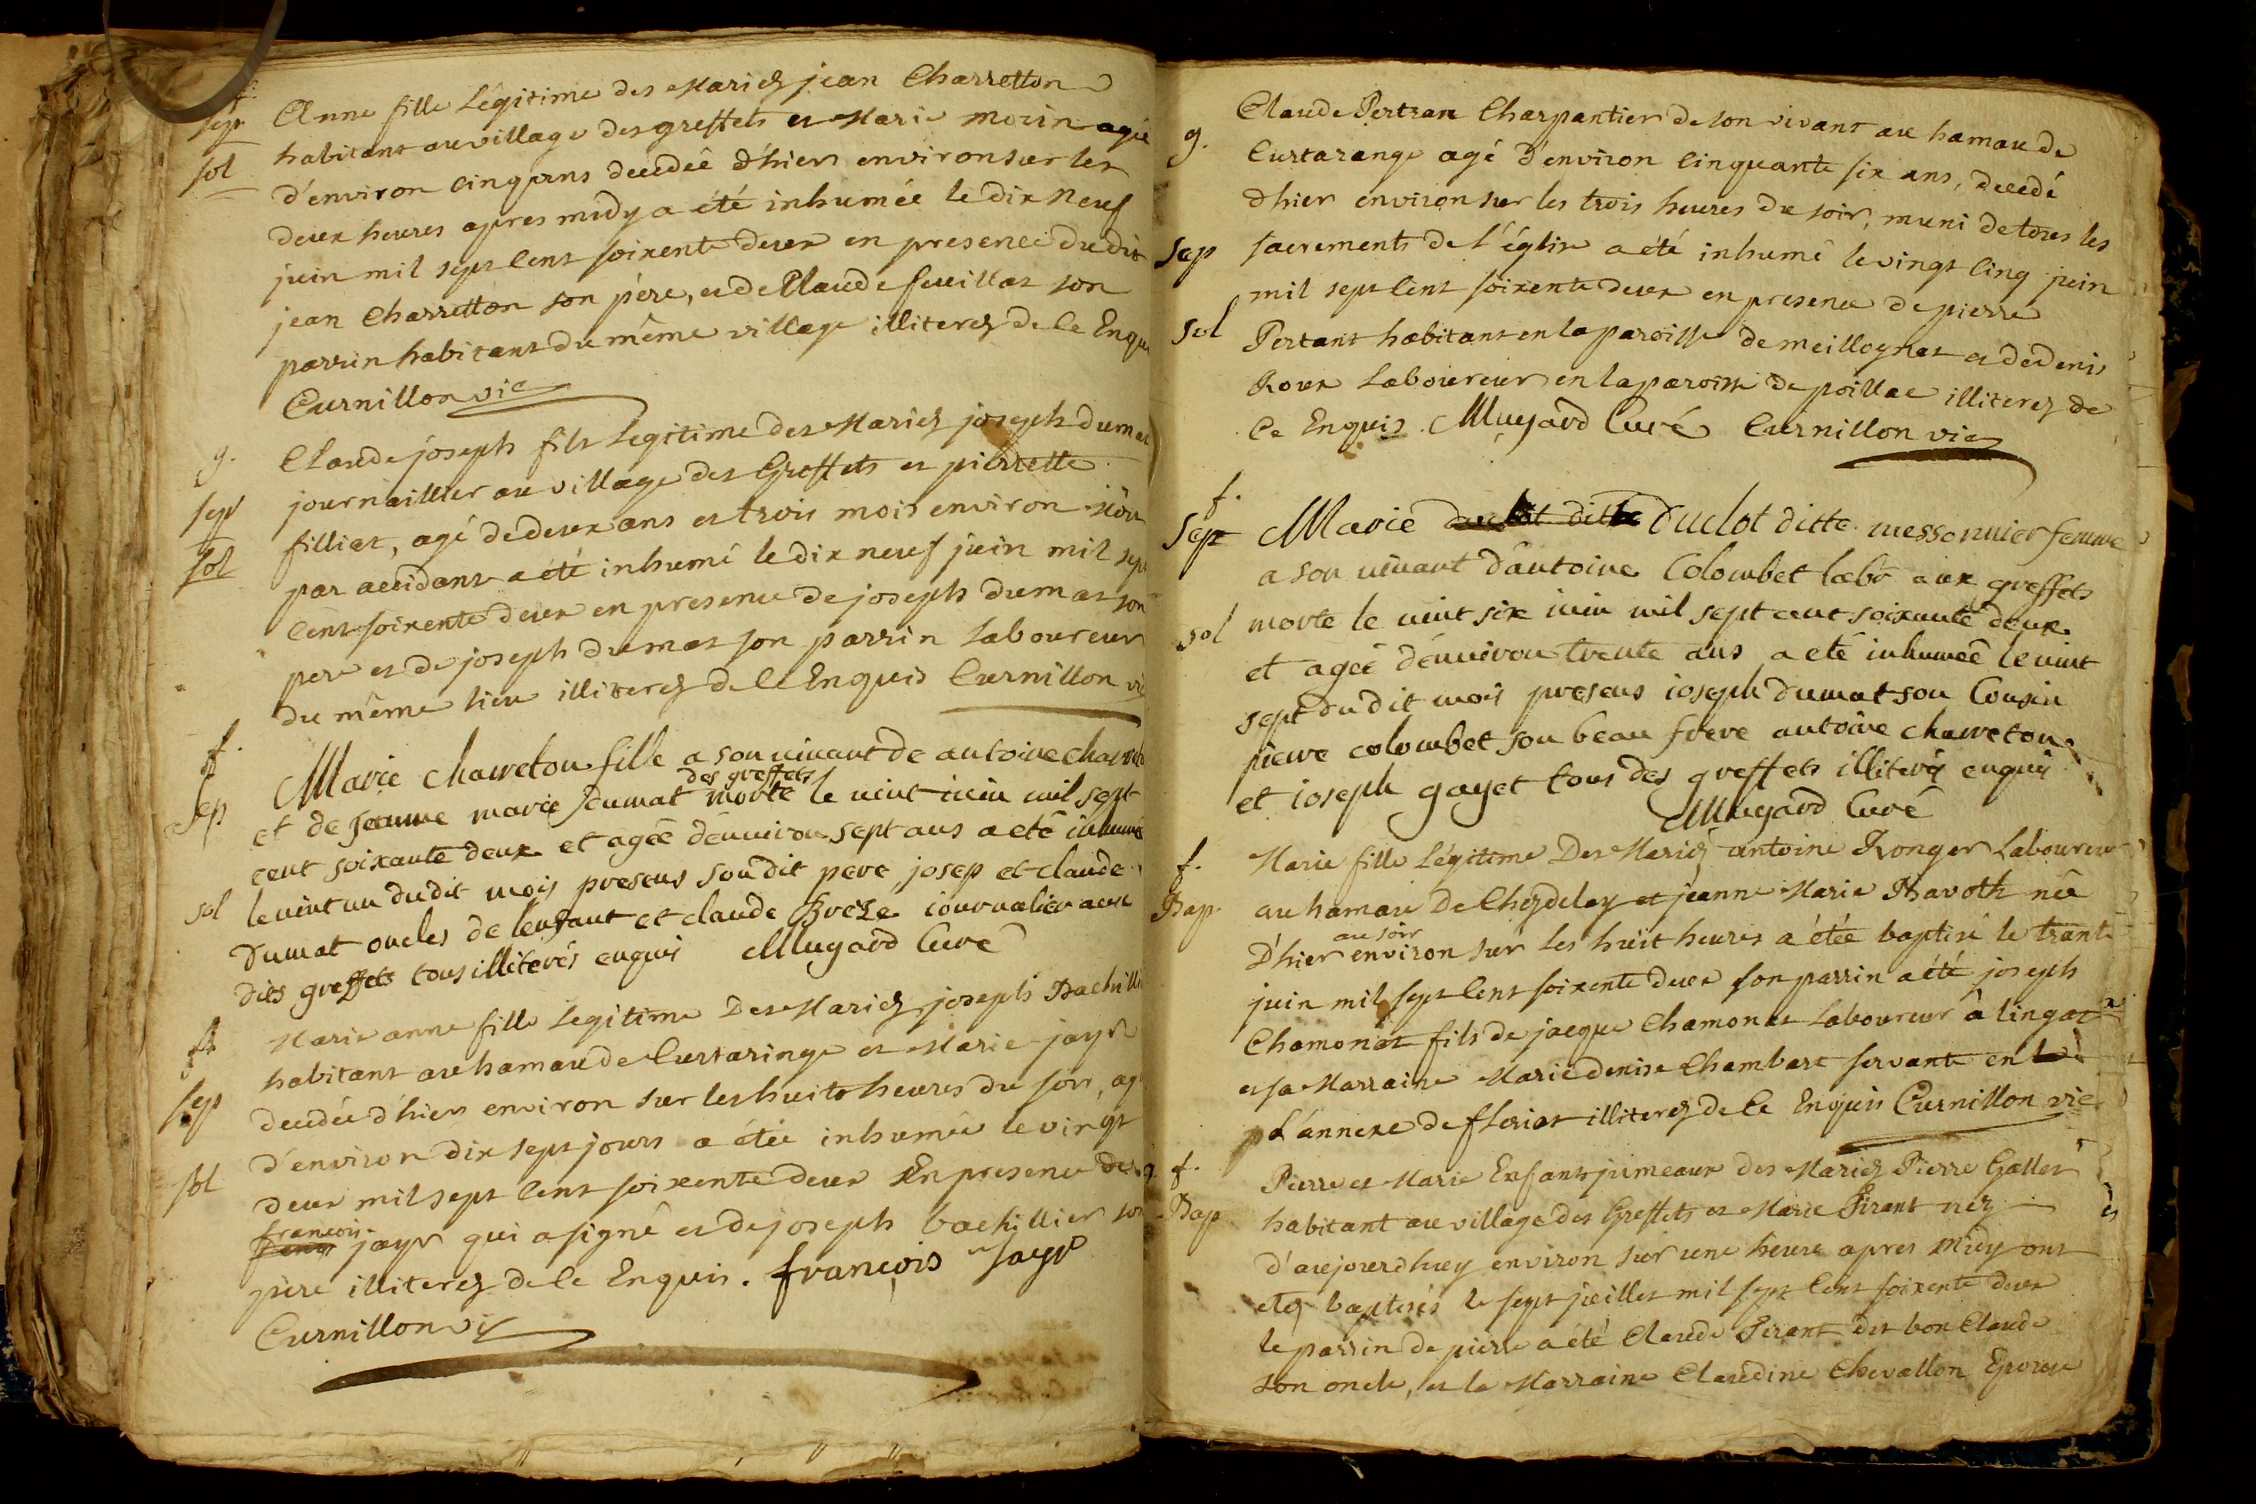 f.
sep
sol
Anne fille Légitime des Mariez jean Charretton
habitant au village des greffets et Marie morin agée
d'environ cinq ans decedée d'hier environ sur les
deux heures apres midy a été inhumée le dix neuf
juin mil sept cent soixente deux en presence du dit
jean Charretton son père, et de Claude feuillat son
parrin habitant du même village illiterez de ce Enquis
Curnillon vic
g.
sep
sol
Claude joseph fils Legitime des Mariez joseph dumat
journaillier au village des Greffets et pierrette
filliat, agé de deux ans et trois mois environ
par accidant a été inhumé le dix neuf juin mil sept
cent soixente deux en presence de joseph dumat son
pere et de joseph dumas son parrin Laboureur
du même lieu illiterez de ce Enquis Curnillon vic
f.
sep
sol
Marie charreton fille a son vivant de antoine charreton
et de jeanne marie dumat morte des greffets le vint iuin mil sept
cent soixante deux et ageé d'environ sept ans a eté inhumé
le vint un dudit mois presens son dit pere, josep et claude
Dumat oncles de lenfant et claude broze iournalier aux
dits greffets tous illiterés enquis Mugard Curé
f.
sep
sol
Marie anne fille Legitime Des Mariez joseph Bachillier
habitant au hamau de Curtaringe et Marie jayr
decedée d'hier environ sur les huit heures du soir, agée
d'environ dix sept jours a étée inhumée le vingt
deux mil sept cent soixente deux En presence de
françois jayr qui a signé et de joseph bachillier son
père illiterez de ce Enquis. françois jayr
Curnillon vic
g.
sep
sol
Claude Pertran Charpantier de son vivant au hamau de
Curtarange agé d'environ cinquante six ans, decedé
d'hier environ sur les trois heures du soir, muni de tous les
sacrements de l'église a été inhumé le vingt cinq juin
mil sept cent soixente deux en presence de pierre
Pertant habitant en la paroisse de meillognat et de denis
Roux Laboureur en la paroisse de poillac illiterez de
Ce Enquis. Mugard Curé Curnillon vic
f.
sep
sol
Marie duclot ditte messonnier femme
a son vivant d'antoine Colombet labr aux greffets
morte le vint six iuin mil sept cent soixante deux
et ageé d'environ trente ans a eté inhumeé le vint
sept dudit mois presens ioseph dumat son Cousin
pierre colombet son beau frere antoine charreton
et ioseph gayet tous des greffets illiterés enquis
Mugard Curé
f.
Bap.
Marie fille Légitime Des Mariez antoine Ronger Laboureur
au hamau De Chezdeley et jeanne Marie Bavoth née
D'hier environ au soir sur les huit heures a étée baptisé le trante
juin mil sept cent soixente deux son parrin a été joseph
Chamonat fils de jacque Chamonat Laboureur à lingat
et sa Marraine Marie denise Chambart servante en
L'annexe de fleriat illiterez de ce Enquis Curnillon vic
g. f.
Bap
Pierre et Marie Enfants jumeaux des Mariez Pierre Gallet
habitant au village des Greffets et Marie Pirant nez
d'aujourdhuy environ sur une heure apres Midy ont
etez baptisés le sept juillet mil sept cent soixente deux
le parrin de pierre a été Claude Pirant dit bon Claude
son oncle, et la Marraine Claudine Chevallon Epouse